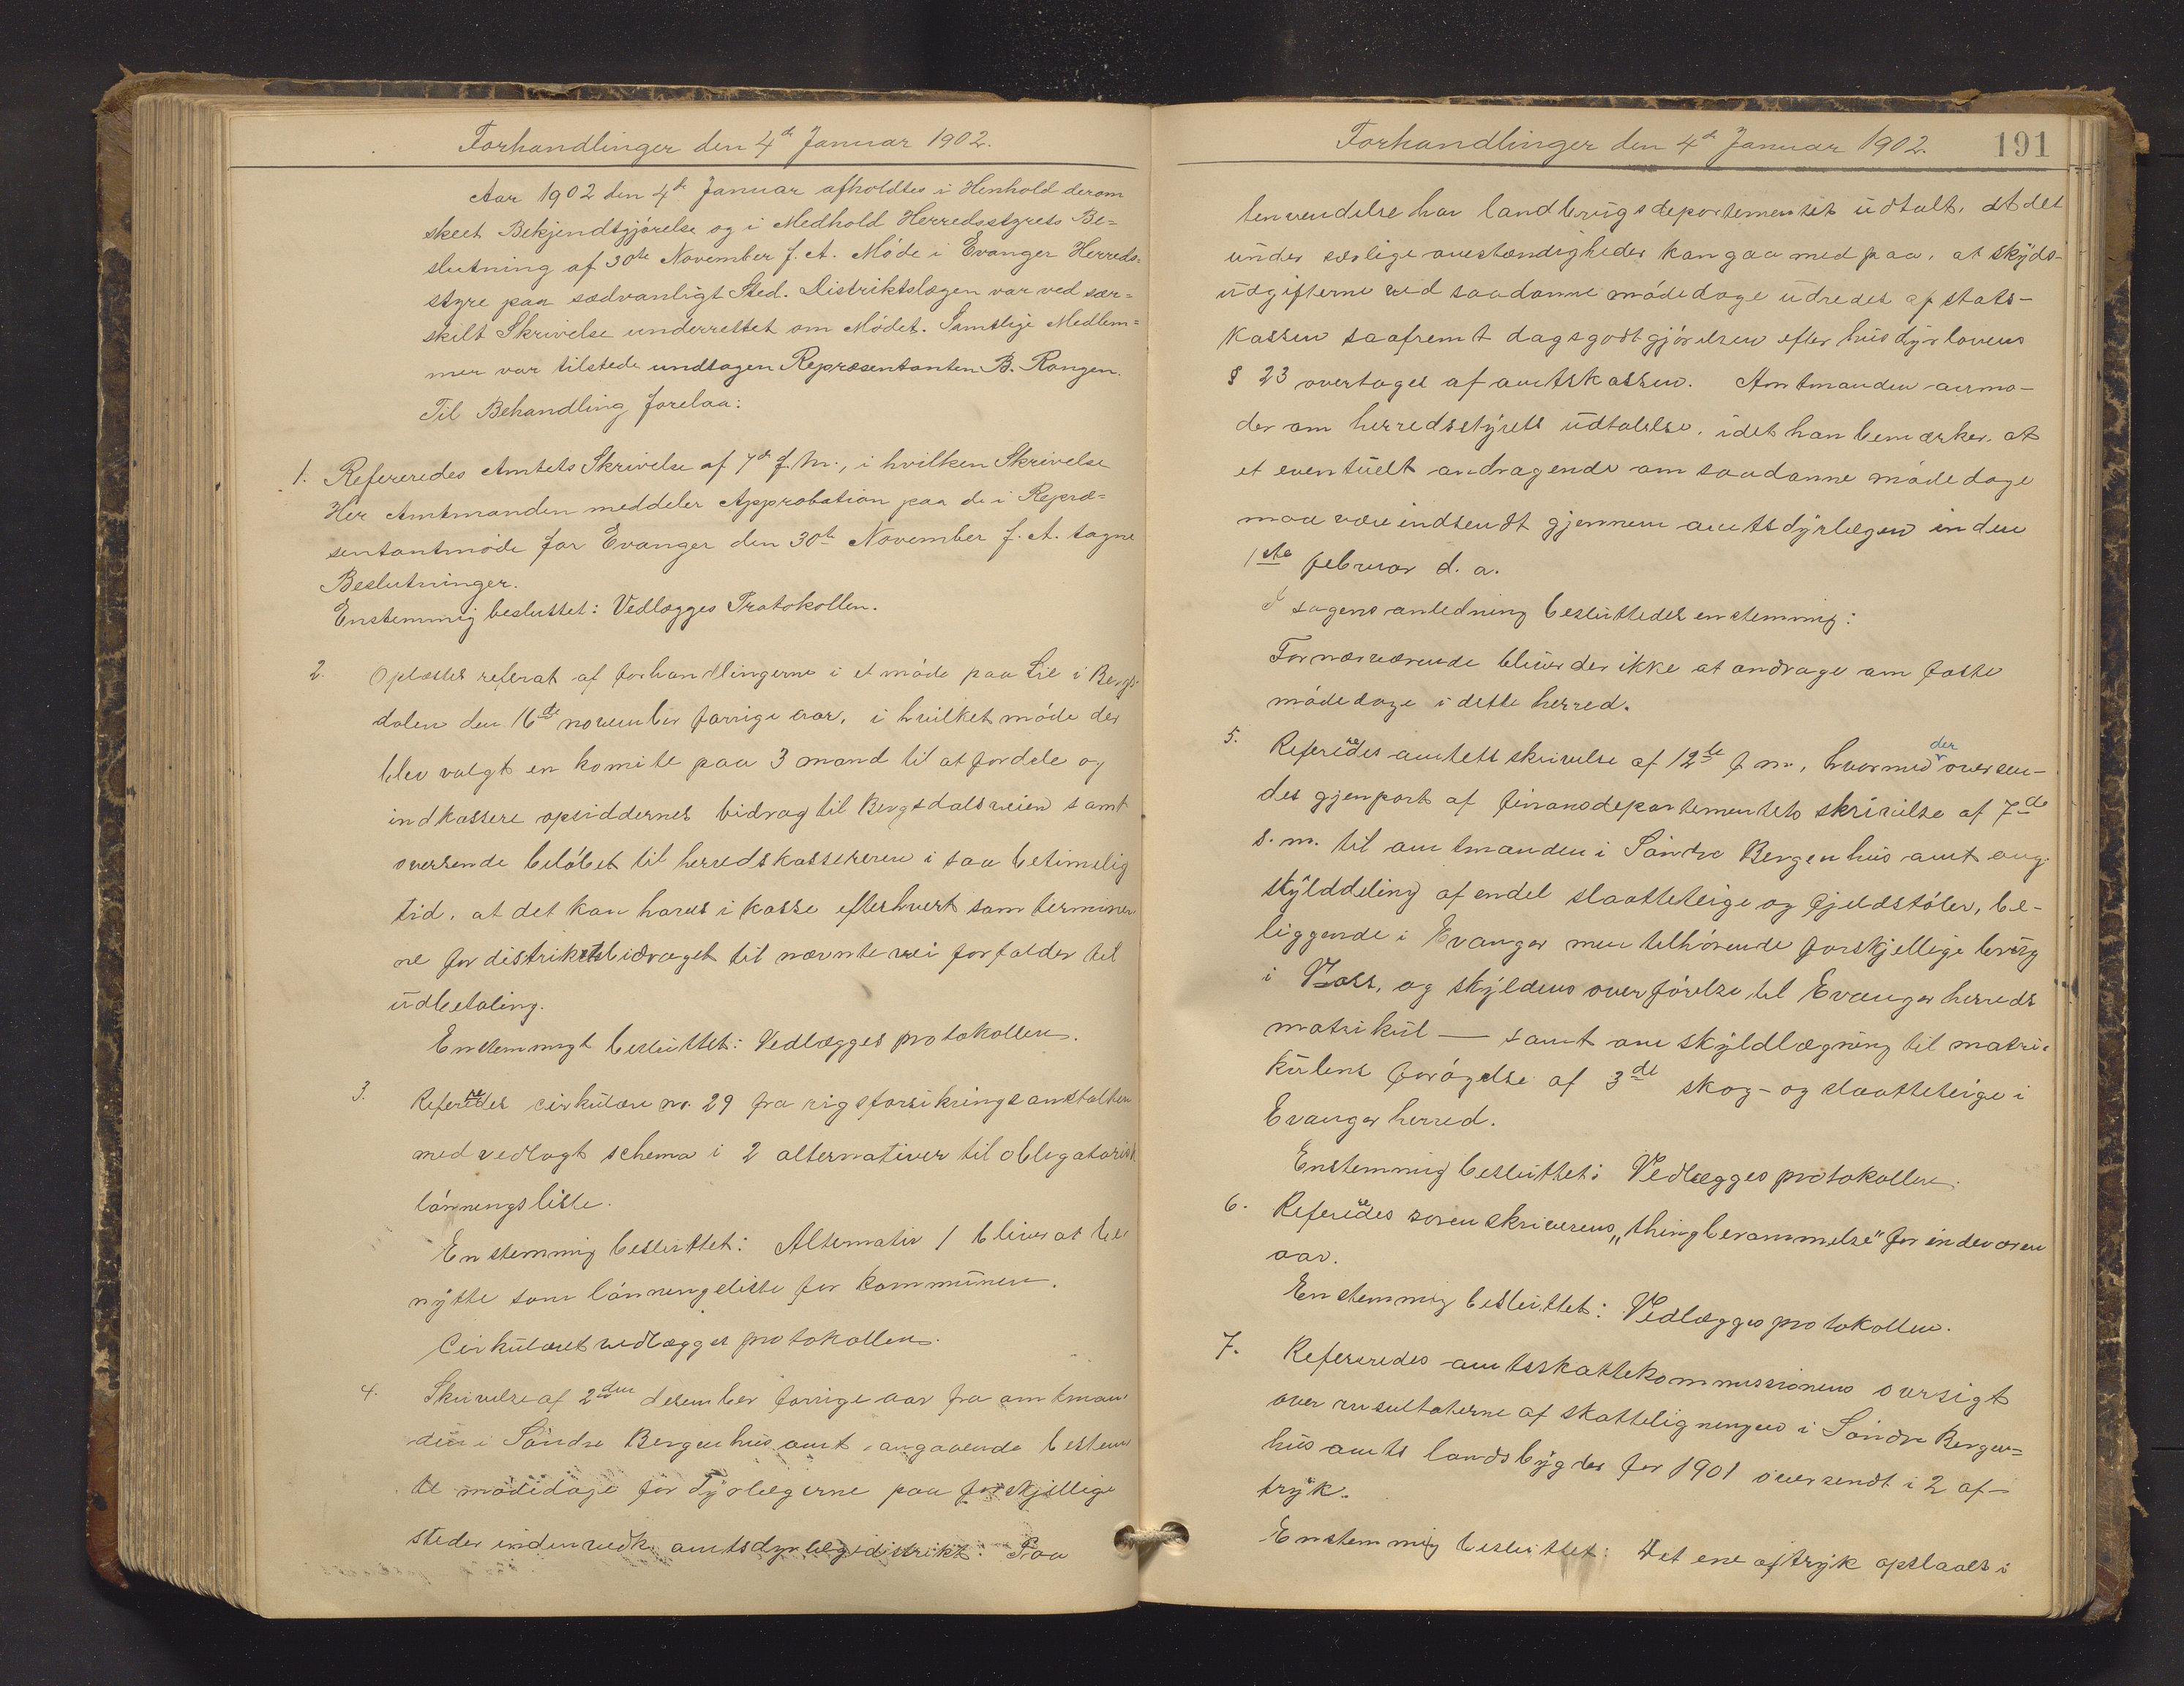 Forhandlinger den 4de Januar 1902.
Aar 1902 den 4de Januar afholdtes i Henhold derom
skeet Bekjendtgjörelse og i Medhold Herredsstyrets Be=
slutning af 30te November f. A. Möde i Evanger Herreds=
styre paa sædvanligt Sted. Distriktslægen var ved sær=
skilt Skrivelse underrettet om Mödet. Samtlige Medlem=
mer var tilstede undtagen Repræsentanten B. Rongen.
Til Behandling forelaa:
1. Refereredes Amtets Skrivelse af 7de f. M., i hvilken Skrivelse
Her Amtmanden meddeler Approbation paa de i Repræ=
sentantmöde for Evanger den 30te November f. A. tagne
Beslutninger.
Enstemmig besluttet: Vedlægges Protokollen.
2. Oplæstes referat af forhandlingerne i et möde paa Lie i Bergs-
dalen den 16de november forrige aar, i hvilket möde der
blev valgt en komite paa 3 mand til at fordele og
indkassere opsiddernes bidrag til Bergsdalsveien samt
oversende belöbet til herredskassereren i saa betimelig
tid, at det kan haves i kasse efterhvert som terminer
ne for distriktsbidraget til nævnte vei forfalder til
udbetaling.
Enstemmigt besluttet: Vedlægges protokollen.
3. Refereredes cirkulære no. 29 fra rigsforsikringsanstalten
med vedlagt schema i 2 alternativer til obligatorisk
lönningsliste.
Enstemmig besluttet: Alternativ 1 bliver at be
nytte som lönningsliste for kommunen.
Cirkulæret vedlægges protokollen.
4. Skrivelse af 2den desember forrige aar fra amtman
den i Söndre Bergenhus amt angaaende bestem
te mödedage for dyrlægerne paa forskjellige
steder inden vedk. amtsdyrlægedistrikt: Paa
Forhandlinger den 4de Januar 1902. 191
henvendelse har landbrugsdepartementet udtalt, at det
under særlige omstændigheder kan gaa med paa, at skyds-
udgifterne ved saadanne mödedage udredes af stats-
kassen saafremt dagsgodtgjörelsen efter husdyrlovens
§ 23 overtages af amtskassen. Amtmanden anmo-
der om herredsstyrets udtalelse, idet han bemærker, at
et eventuelt andragende om saadanne mödedage
maa være indsendt gjennem amtsdyrlægen inden
1ste februar d. a.
I sagens anledning besluttedes enstemmig:
Fornærværende bliver der ikke at andrage om faste
mödedage i dette herred.
5. Refereredes amtets skrivelse af 12te f. m., hvormed der oversen-
des gjenpart af finansdepartementets skrivelse af 7de
s. m. til amtmanden i Söndre Bergenhus amt ang.
skylddeling af endel slaatteteige og fjeldstöler, be-
liggende i Evanger men tilhörende forskjellige brug
i Voss, og skyldens overförelse til Evanger herreds
matrikul — samt om skyldlægning til matri-
kulens forögelse af 3de skog- og slaatteteige i
Evanger herred.
Enstemmig besluttet: Vedlægges protokollen.
6. Refereredes sorenskriverens „thingberammelse" for indeværen
aar.
Enstemmig besluttet: Vedlægges protokollen.
7. Refereredes amtsskattekommissionens oversigt
over resultaterne af skatteligningen i Söndre Bergen=
hus amts landsbygder for 1901 oversendt i 2 af-
tryk.
Enstemmig besluttet: Det ene aftryk opslaaes i